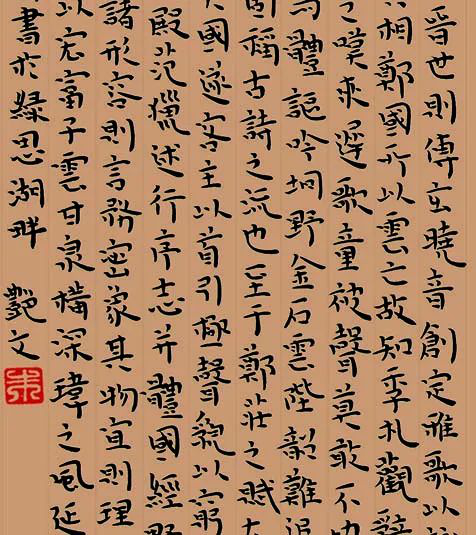 晉世則傅玄曉音創定雅歌以
相鄭國所以雲亡故知季札觀
之嘆來遲歌童被聲莫敢不
體謳吟坰野金石雲陛韶難追
固稱古詩之流也至于鄭莊之賦
國遂客主以首引極聲貌以窮
殿獵述行序志并體國經
諸形容則言務密象其物宜則理
以宏富子雲甘泉構深瑋之風延
書於綠思湖畔 艷文